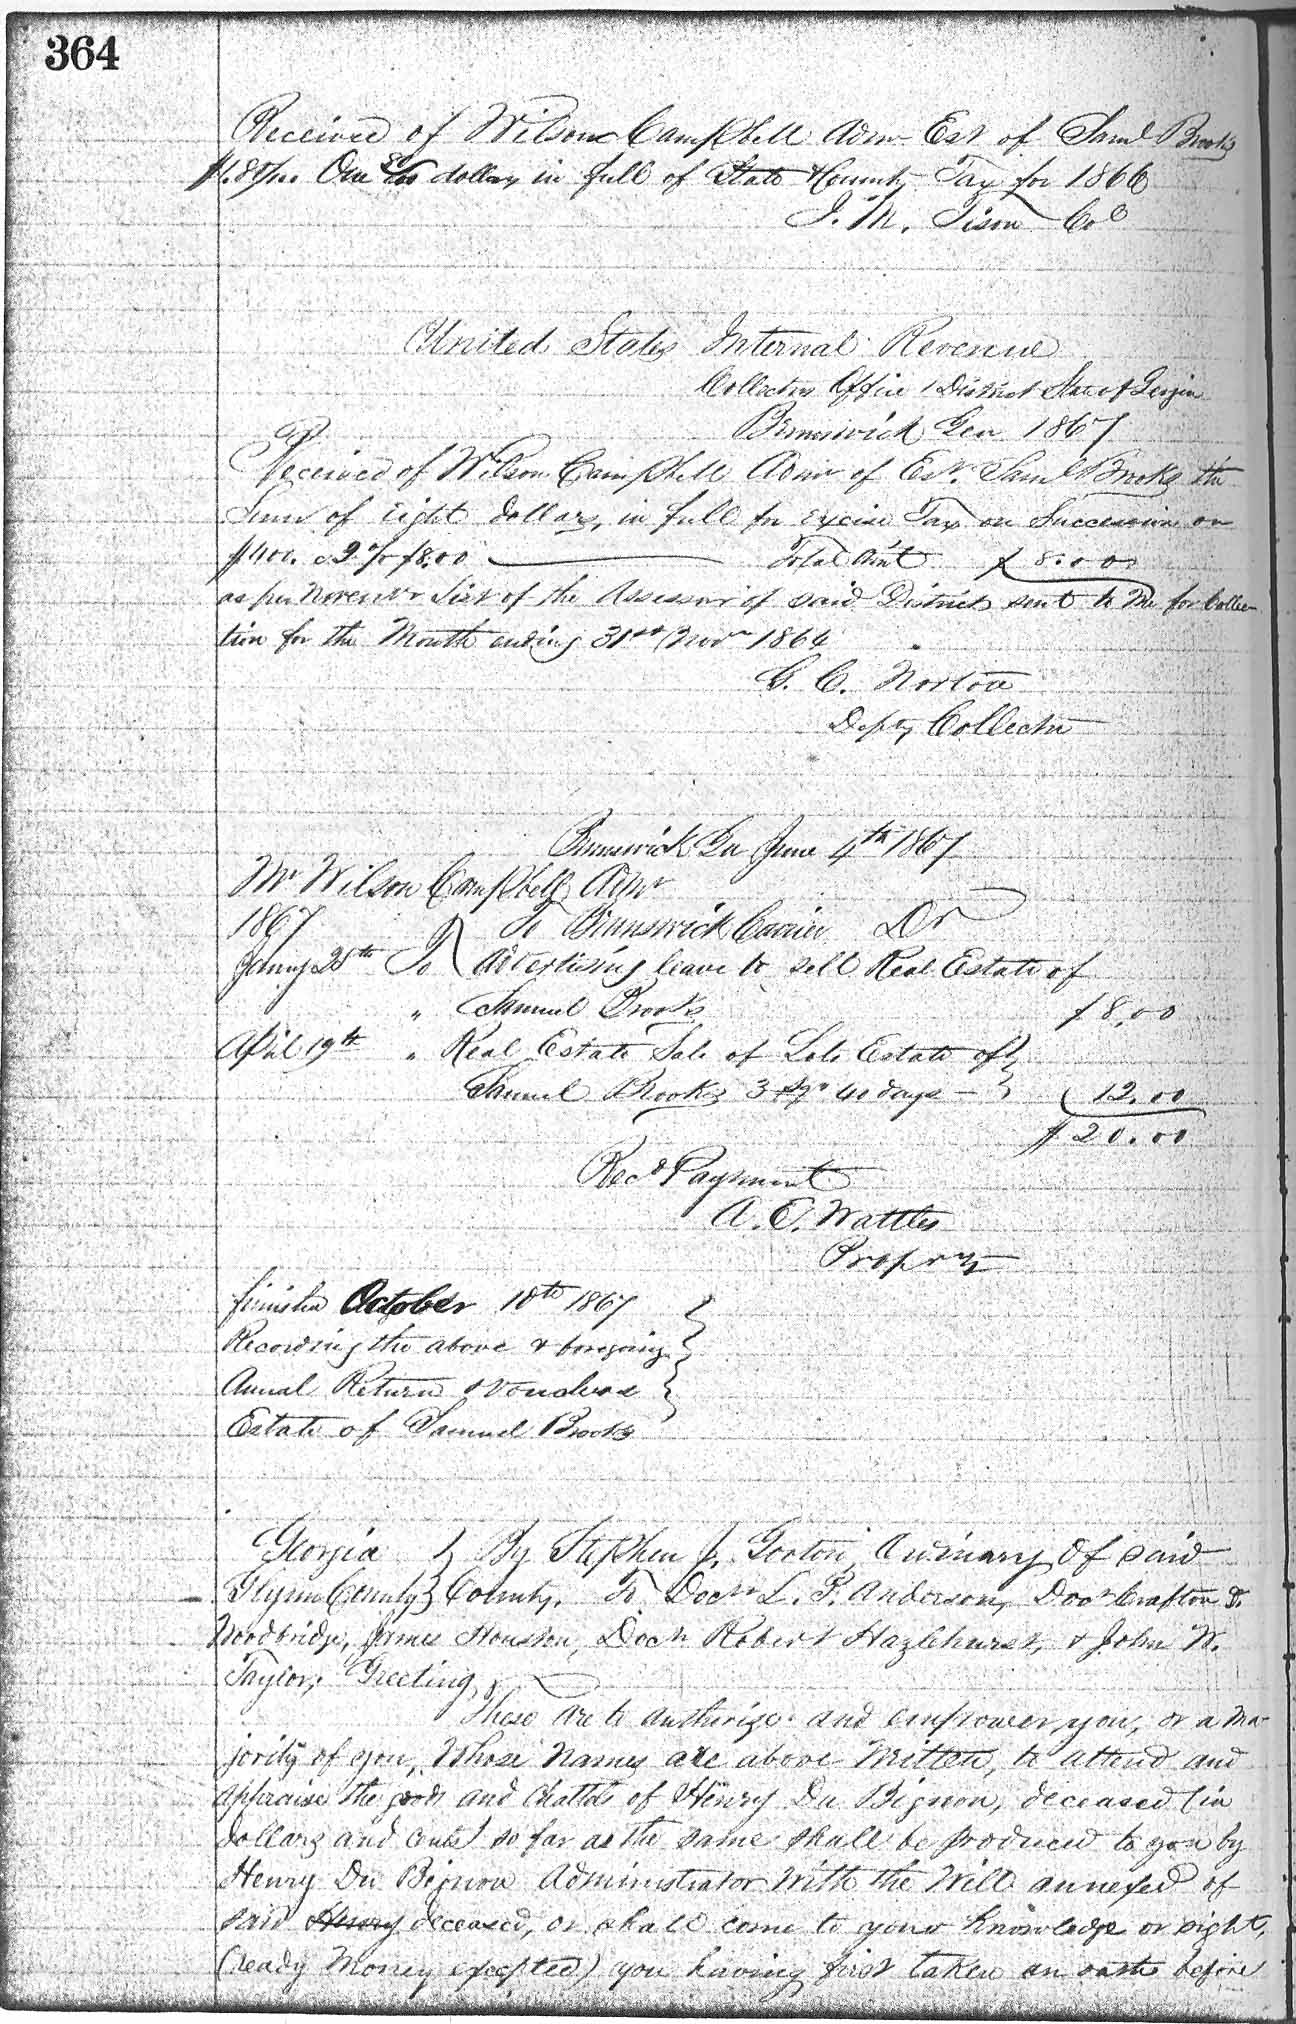 364
Received of Wilson Campbell Admr Est of Saml Brooks
One dollars in full of State & County Tax for 1866
J. M. Tison Col
United States Internal Revenue
Collectors Office 1 District State of Georgia
Brunswick Geo 1867
Received of Wilson Campbell Admr of Est. Saml Brooks the
Sum of Eight dollars, in full for excise Tax on Succession on
$400. @ 2 % $8.00 Total Am't $8.00
as per Novembr List of the Assessor of said District sent to me for Collec-
tion for the Month ending 31st Novr 1864
G. C. Norton
Depty Collector
Brunswick Ga June 4th 1867
Mr Wilson Campbell Admr
1867 To Brunswick Courier Dr
To Advertising leave to sell Real Estate of
" Samuel Brooks $8.00
April 19th " Real Estate Sale of Estate of
Samuel Brooks 3 sqr 40 days — 12.00
$20.00
Recd Payment
A. E. Wattles
Propr
finished October 18th 1867
Recording the above & foregoing
Annual Return & vouchers
Estate of Samuel Brooks
Georgia } By Stephen J. Gorton, Ordinary of said
Glynn County } County. To Doctr L. P. Anderson, Doctr Crafton D.
Woodbridge, James Houston, Doctr Robert Hazlehurst, & John W.
Taylor; Greeting,
These are to authorize and empower you, or a ma-
jority of you, Whose Names are above Written, to attend and
appraise the goods and chattels of Henry Du Bignon, deceased (in
dollars and cents) so far as the same shall be produced to you by
Henry Du Bignon Administrator With the Will annexed of
said Henry deceased, or shall come to your knowledge or sight,
(ready Money excepted) you having first taken an oath before